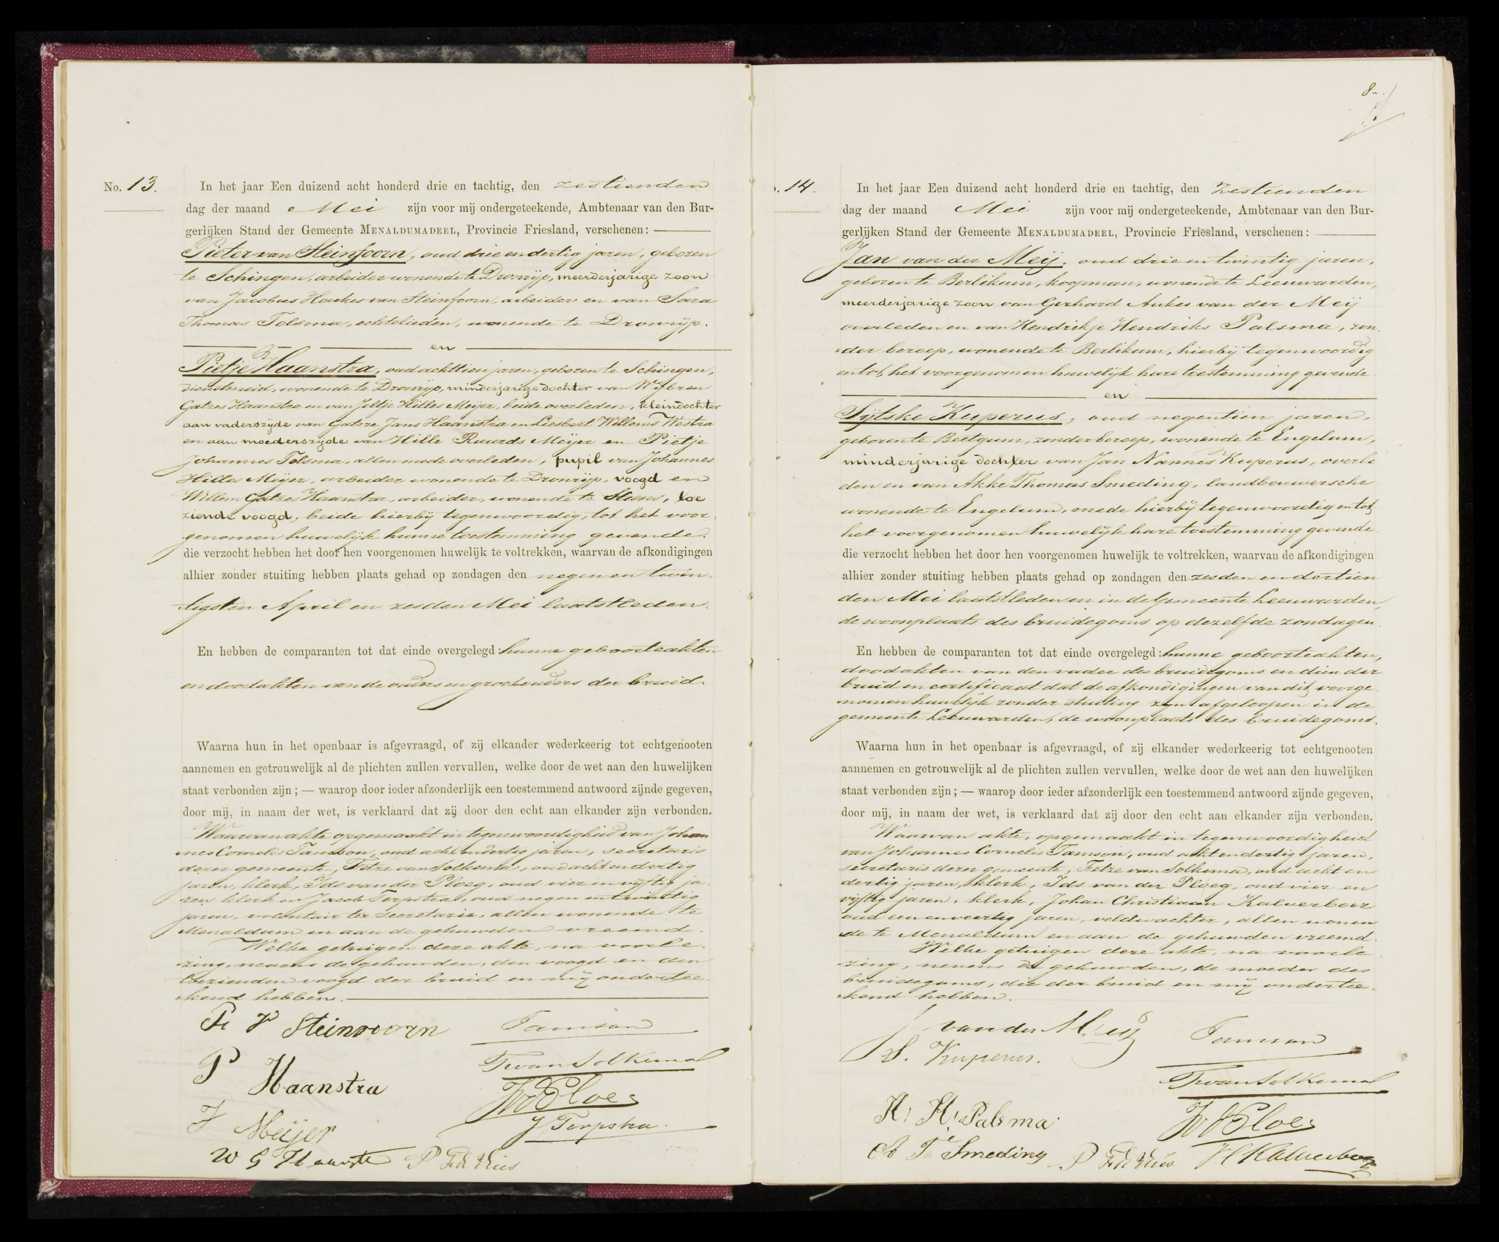 No. 13.
In het jaar Een duizend acht honderd drie en tachtig, den zestienden
dag der maand Mei zijn voor mij ondergeteekende, Ambtenaar van den Bur-
gerlijken Stand der Gemeente MENALDUMADEEL, Provincie Friesland, verschenen:
Pieter van Steinfoorn, oud drie en dertig jaren, geboren
te Schingen, arbeider wonende te Dronrijp, meerderjarige zoon
van Jacobus Haukes van Steinfoorn, arbeider en van Sara
Thomas Tolsma, echtelieden, wonende te Dronrijp.
en
Pietje Haanstra, oud achttien jaren, geboren te Schingen,
dienstmeid, wonende te Dronrijp, minderjarige dochter van Wybren
Gatzes Haanstra en van Jeltje Hilles Meijer, beide overleden, kleindochter
aan vaderszyde van Gatze Jans Haanstra en Liesbert Willems Westra
en aan moederszyde van Hille Ruurds Meijer en Pietje
Johannes Tolsma, allen mede overleden, pupil van Johannes
Hilles Meijer, arbeider wonende te Dronrijp, voogd en
Willem Gatzes Haanstra, arbeider, wonende te Slappe, toe
ziende voogd, beide hierbij tegenwoordig, tot het voor
genomen huwelijk hunne toestemming gevende.
die verzocht hebben het door hen voorgenomen huwelijk te voltrekken, waarvan de afkondigingen
alhier zonder stuiting hebben plaats gehad op zondagen den negen en twin
tigsten April en zesden Mei laatstleden.
En hebben de comparanten tot dat einde overgelegd: hunne geboorteakten
en doodakten van de ouders en grootouders der bruid.
Waarna hun in het openbaar is afgevraagd, of zij elkander wederkeerig tot echtgenooten
aannemen en getrouwelijk al de plichten zullen vervullen, welke door de wet aan den huwelijken
staat verbonden zijn; — waarop door ieder afzonderlijk een toestemmend antwoord zijnde gegeven,
door mij, in naam der wet, is verklaard dat zij door den echt aan elkander zijn verbonden.
Waarvan akte opgemaakt in tegenwoordigheid van Johan
nes Cornelis Tamson, oud acht en dertig jaren, secretaris
dezer gemeente, Fetze van Solkema, oud acht en dertig
jaren, klerk, Ids van der Ploeg, oud vier en vijftig ja
ren klerk en Jacob Terpstra, oud negen en twintig
jaren, volontair ter Secretarie, allen wonende te
Menaldum en aan de gehuwden vreemd.
Welke getuigen deze akte, na voorle
zing, nevens de gehuwden, den voogd en den
toezienden voogd der bruid en mij ondertee
kend hebben.
P V Steinvoorn
Tamson
P Haanstra
F van Solkema
J Meijer
IvdPloeg
J Terpstra
W G Haanstra
14.
In het jaar Een duizend acht honderd drie en tachtig, den zestienden
dag der maand Mei zijn voor mij ondergeteekende, Ambtenaar van den Bur-
gerlijken Stand der Gemeente MENALDUMADEEL, Provincie Friesland, verschenen:
Jan van der Meij, oud drie en twintig jaren,
geboren te Berlikum, koopman, wonende te Leeuwarden,
meerderjarige zoon van Gerhard Aukes van der Meij
overleden en van Hendrikje Hendriks Palsma, zon
der beroep, wonende te Berlikum, hierbij tegenwoordig
en tot het voorgenomen huwelijk hare toestemming gevende
en
Sytske Kuperus, oud negentien jaren,
geboren te Beetgum, zonder beroep, wonende te Engelum,
minderjarige dochter van Jan Nannes Kuperus, overle
den en van Akke Thomas Smeding, landbouwersche
wonende te Engelum, mede hierbij tegenwoordig en tot
het voorgenomen huwelijk hare toestemming gevende
die verzocht hebben het door hen voorgenomen huwelijk te voltrekken, waarvan de afkondigingen
alhier zonder stuiting hebben plaats gehad op zondagen den zesden en dertien
den Mei laatstleden en in de Gemeente Leeuwarden,
de woonplaats des bruidegoms op dezelfde zondagen.
En hebben de comparanten tot dat einde overgelegd: hunne geboorteakten,
doodakten van den vader des bruidegoms en dien der
bruid en certificaat dat de afkondigingen van dit voorge
nomen huwelijk zonder stuiting zijn afgeloopen in de
gemeente Leeuwarden, de woonplaats des bruidegoms.
Waarna hun in het openbaar is afgevraagd, of zij elkander wederkeerig tot echtgenooten
aannemen en getrouwelijk al de plichten zullen vervullen, welke door de wet aan den huwelijken
staat verbonden zijn; — waarop door ieder afzonderlijk een toestemmend antwoord zijnde gegeven,
door mij, in naam der wet, is verklaard dat zij door den echt aan elkander zijn verbonden.
Waarvan akte, opgemaakt in tegenwoordigheid
van Johannes Cornelis Tamson, oud acht en dertig jaren,
secretaris dezer gemeente, Fetze van Solkema, oud acht en
dertig jaren, klerk, Ids van der Ploeg, oud vier en
vijftig jaren, klerk, Johan Christiaan Kalverboer
oud een en veertig jaren, veldwachter, allen wonen
de te Menaldum en aan de gehuwden vreemd.
Welke getuigen deze akte, na voorle
zing, nevens de gehuwden, de moeder des
bruidegoms, die der bruid en mij ondertee
kend hebben.
J. van der Meij
Tamson
S. Kuperus.
F van Solkema
H. H. Palsma
IvdPloeg
A T Smeding
JCKalverboer